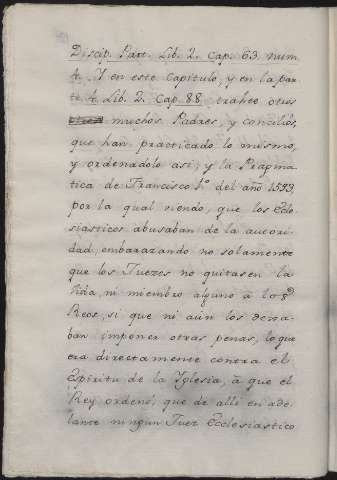 Discip. Part. Lib. 2. Cap. 63. num.
4. Y en este Capitulo, y en la par
te 4. Lib. 2. Cap. 88. trahee otros
muchos Padres, y concilios,
que han practicado lo mismo,
y ordenadolo asi; y la Pragma
tica de Francisco 1.º del año 1593
por la qual viendo, que los Ecle-
siasticos abusaban de la autori
dad, embarazando no solamente
que los Juezes no quitasen la
Vida, ni miembro alguno à los
Reos, si que ni aùn los dexa
ban imponer otras penas, lo que
era directamente contra el
Espiritu de la Yglesia, à que el
Rey ordenò, que de alli en ade-
lante ningun Juez Ecclesiastico